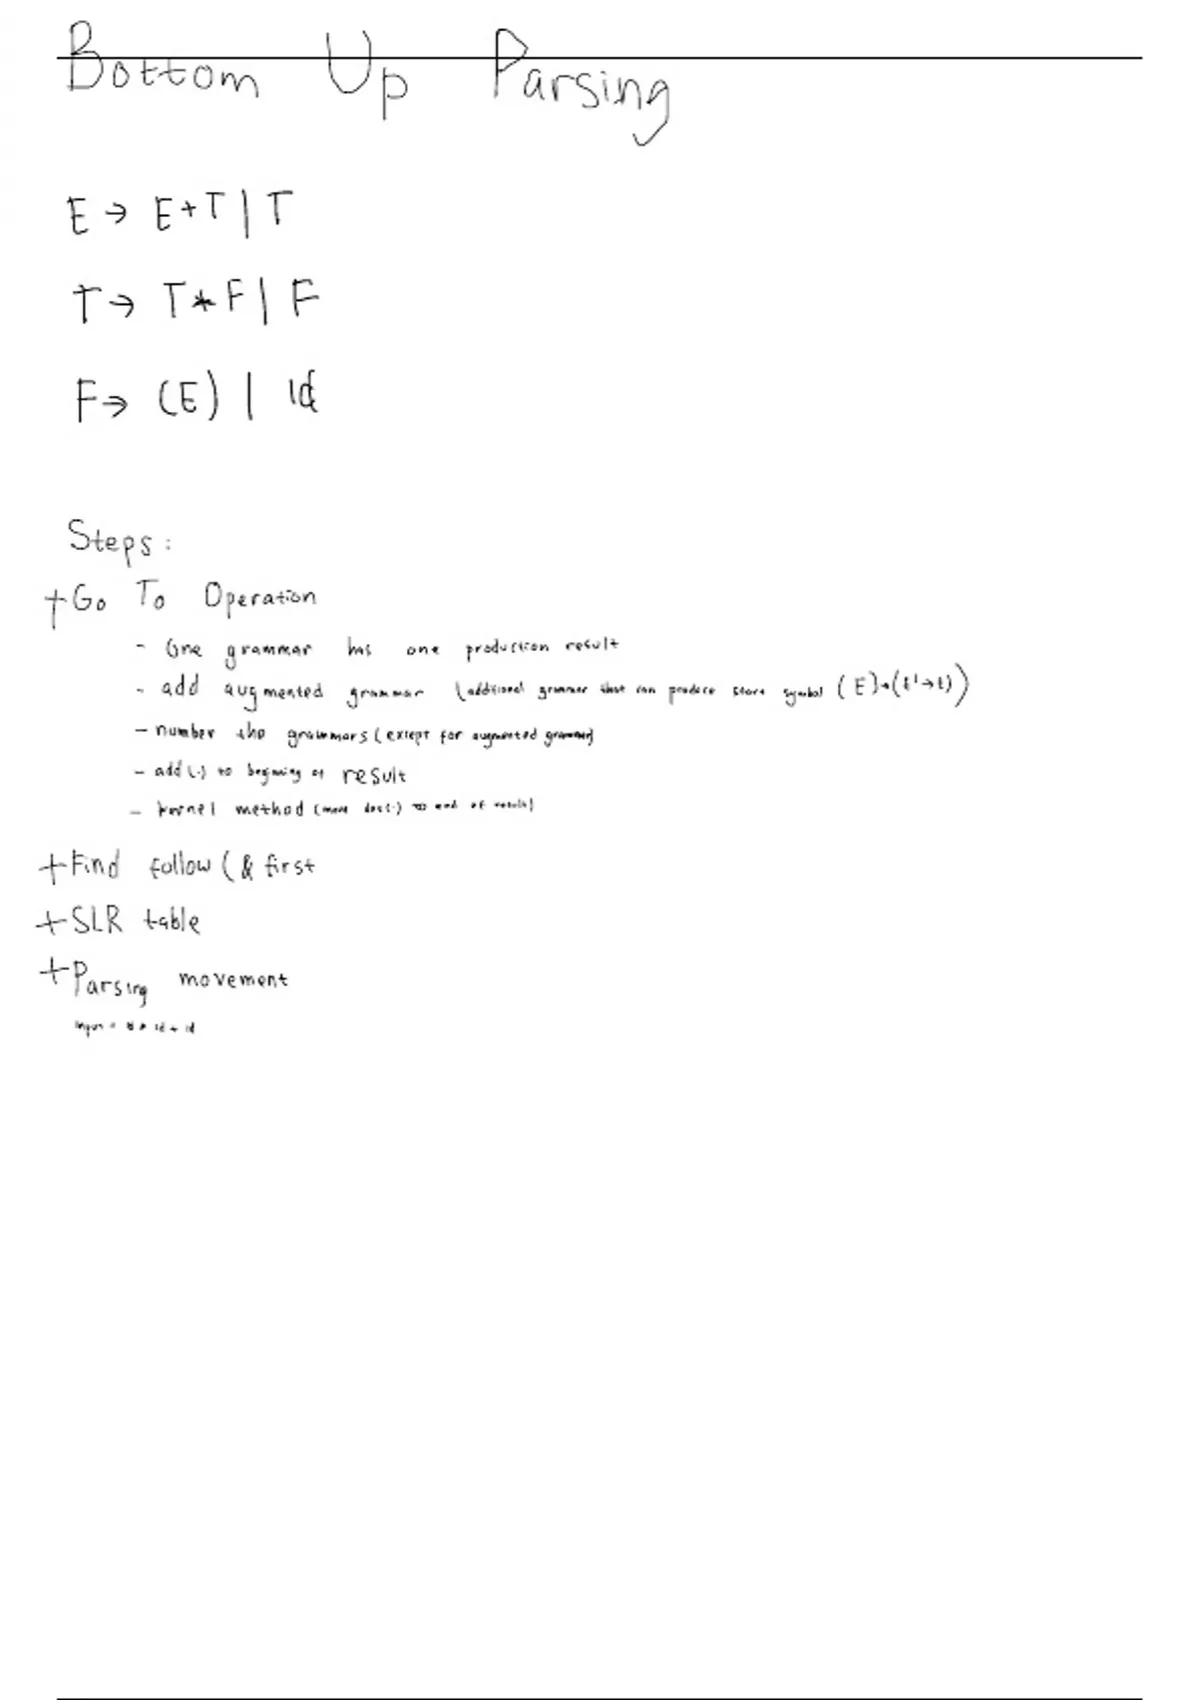 Bottom Up Parsing
E → E+T | T
T → T*F | F
F → (E) | id
Steps:
+Go To Operation
- One grammar has one production result
- add augmented grammar (additional grammar that can produce start symbol (E)→(E'→E))
- number the grammars (except for augmented grammar)
- add (.) to beginning of result
- kernel method (move dot(.) to end of result)
+Find follow (& first
+SLR table
+Parsing movement
Input = id * id + id